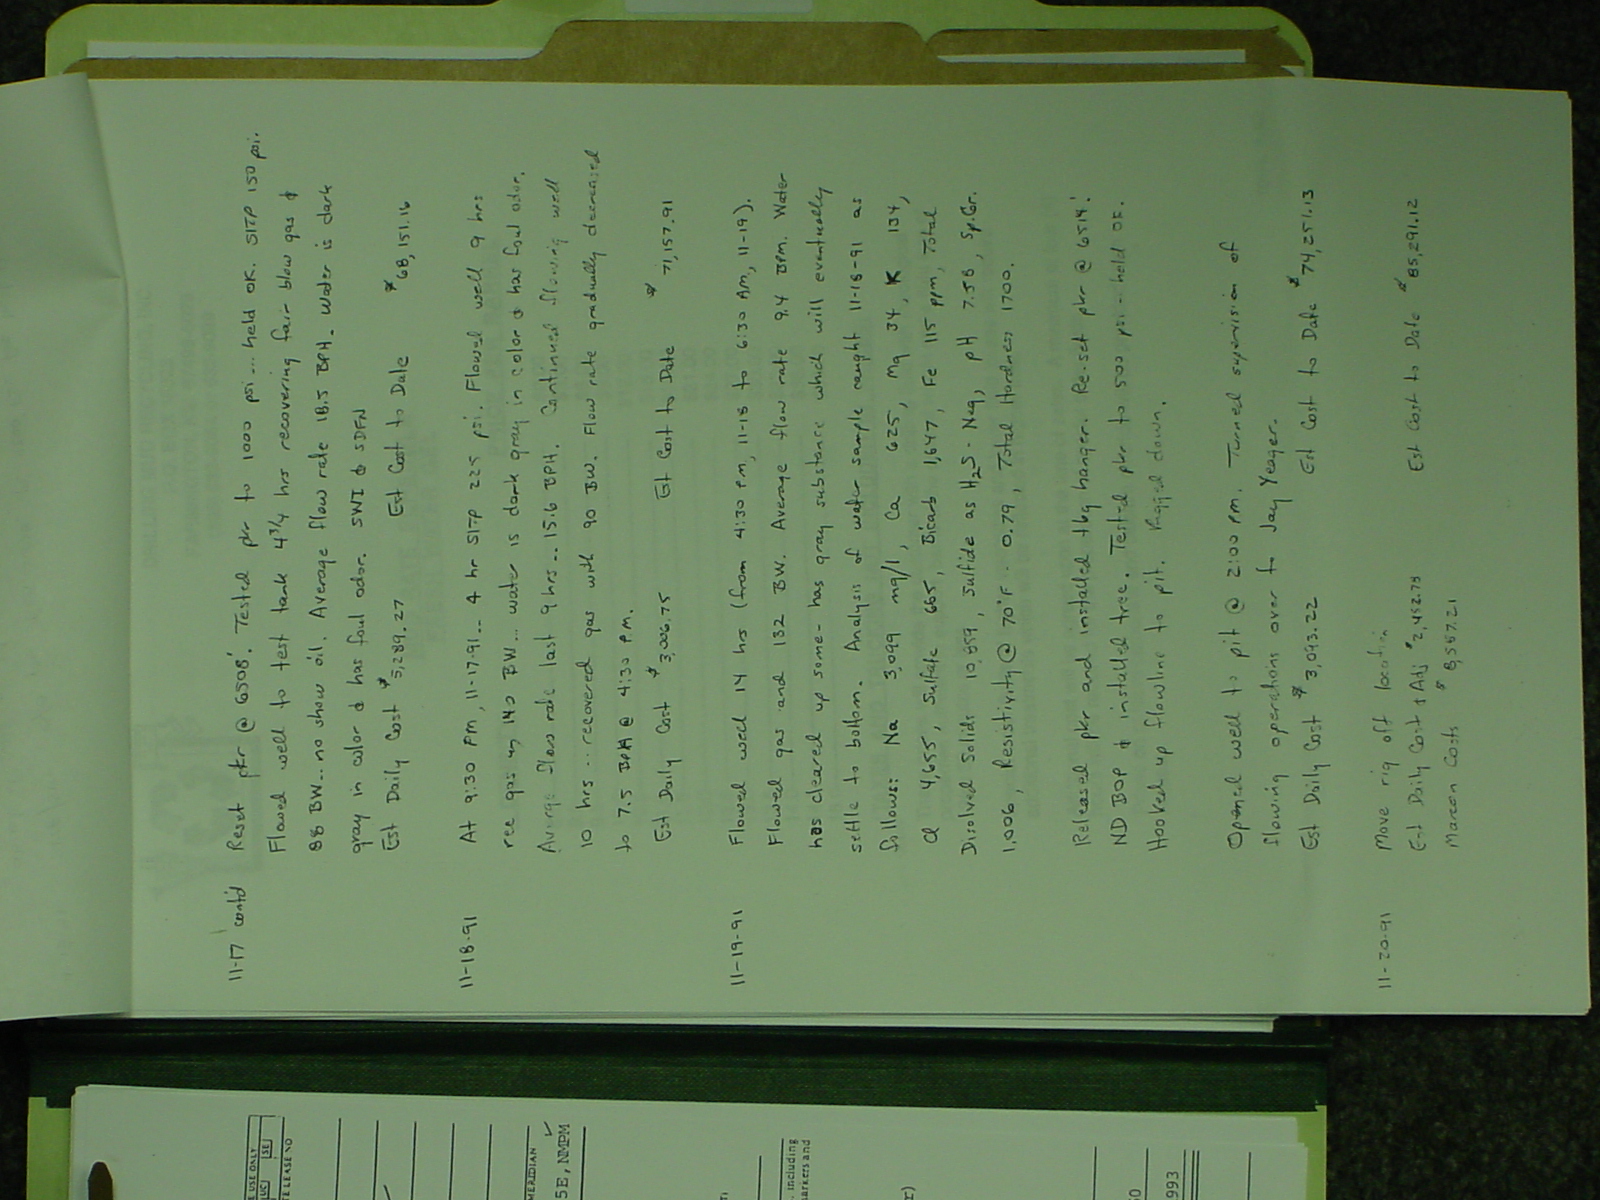 11-17 cont'd Reset pkr @ 6508'. Tested pkr to 1000 psi... held OK. SITP 150 psi.
Flowed well to test tank 4 3/4 hrs recovering fair blow gas &
88 BW... no show oil. Average flow rate 18.5 BPH. Water is dark
gray in color & has foul odor. SWI & SDFN
Est Daily Cost $5,289.27 Est Cost to Date $68,151.16
11-18-91 At 9:30 PM, 11-17-91.. 4 hr SITP 225 psi. Flowed well 9 hrs
rec gas & 140 BW... water is dark gray in color & has foul odor.
Average flow rate last 9 hrs.. 15.6 BPH. Continued flowing well
10 hrs... recovered gas with 90 BW. Flow rate gradually decreased
to 7.5 BPH @ 4:30 P.M.
Est Daily Cost $3,006.75 Est Cost to Date $71,157.91
11-19-91 Flowed well 14 hrs (from 4:30 P.M, 11-18 to 6:30 AM, 11-19).
Flowed gas and 132 BW. Average flow rate 9.4 BPM. Water
has cleared up some- has gray substance which will eventually
settle to bottom. Analysis of water sample caught 11-18-91 as
follows: Na 3,099 mg/l, Ca 625, Mg 34, K 134,
Cl 4,655, Sulfate 665, Bicarb 1,647, Fe 115 ppm, Total
Disolved Solids 10,859, Sulfide as H2S - Neg, pH 7.58, Sp.Gr.
1.006, Resistivity @ 70°F - 0.79, Total Hardness 1700.
Released pkr and installed tbg hanger. Re-set pkr @ 6514'.
ND BOP & installed tree. Tested pkr to 500 psi - held OK.
Hooked up flowline to pit. Rigged down.
Opened well to pit @ 2:00 P.M. Turned supervision of
flowing operations over to Jay Yeager.
Est Daily Cost $3,093.22 Est Cost to Date $74,251.13
11-20-91 Move rig off location
Est Daily Cost & Adj $2,452.78 Est Cost to Date $85,291.12
Marcon Costs $8,587.21
USE ONLY
SE
LEASE NO
MERIDIAN
5E, NMPM
including
markers and
993